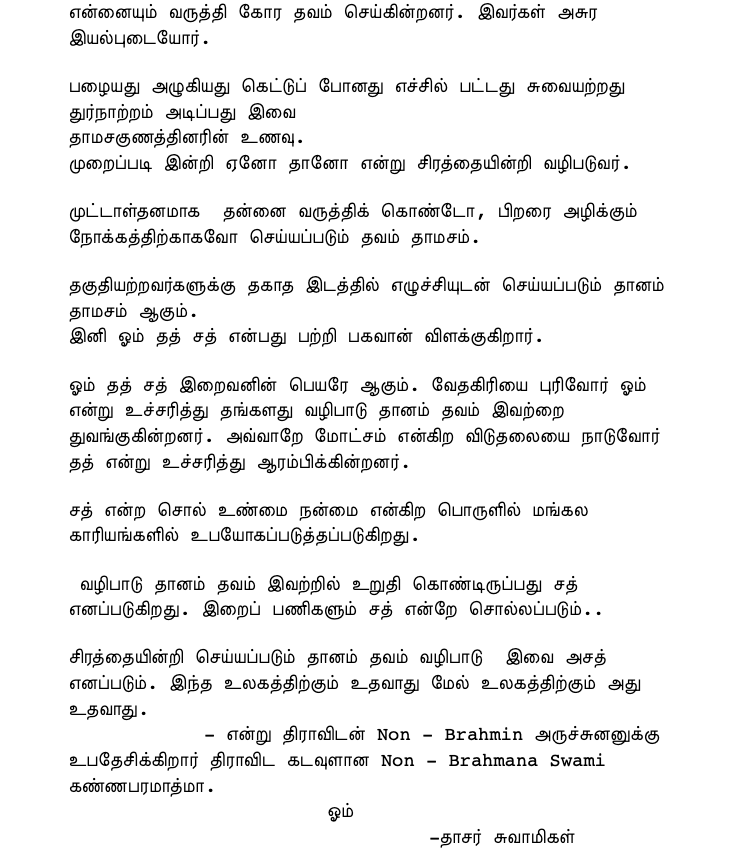 என்னையும் வருத்தி கோர தவம் செய்கின்றனர். இவர்கள் அசுர
இயல்புடையோர்.
பழையது அழுகியது கெட்டுப் போனது எச்சில் பட்டது சுவையற்றது
துர்நாற்றம் அடிப்பது இவை
தாமசகுணத்தினரின் உணவு.
முறைப்படி இன்றி ஏனோ தானோ என்று சிரத்தையின்றி வழிபடுவர்.
முட்டாள்தனமாக தன்னை வருத்திக் கொண்டோ, பிறரை அழிக்கும்
நோக்கத்திற்காகவோ செய்யப்படும் தவம் தாமசம்.
தகுதியற்றவர்களுக்கு தகாத இடத்தில் எழுச்சியுடன் செய்யப்படும் தானம்
தாமசம் ஆகும்.
இனி ஓம் தத் சத் என்பது பற்றி பகவான் விளக்குகிறார்.
ஓம் தத் சத் இறைவனின் பெயரே ஆகும். வேதகிரியை புரிவோர் ஓம்
என்று உச்சரித்து தங்களது வழிபாடு தானம் தவம் இவற்றை
துவங்குகின்றனர். அவ்வாறே மோட்சம் என்கிற விடுதலையை நாடுவோர்
தத் என்று உச்சரித்து ஆரம்பிக்கின்றனர்.
சத் என்ற சொல் உண்மை நன்மை என்கிற பொருளில் மங்கல
காரியங்களில் உபயோகப்படுத்தப்படுகிறது.
வழிபாடு தானம் தவம் இவற்றில் உறுதி கொண்டிருப்பது சத்
எனப்படுகிறது. இறைப் பணிகளும் சத் என்றே சொல்லப்படும்..
சிரத்தையின்றி செய்யப்படும் தானம் தவம் வழிபாடு இவை அசத்
எனப்படும். இந்த உலகத்திற்கும் உதவாது மேல் உலகத்திற்கும் அது
உதவாது.
– என்று திராவிடன் Non – Brahmin அருச்சுனனுக்கு
உபதேசிக்கிறார் திராவிட கடவுளான Non – Brahmana Swami
கண்ணபரமாத்மா.
ஓம்
–தாசர் சுவாமிகள்